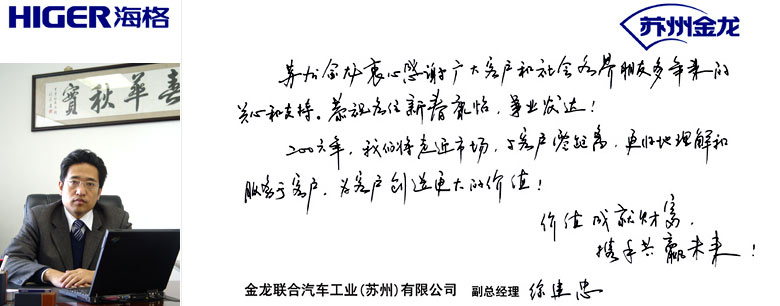 HIGER海格
苏州金龙
春華秋實
苏州金龙衷心感谢广大客户和社会各界朋友多年来的
关心和支持。恭祝各位新春康怡，事业发达！
2006年，我们将走近市场，与客户零距离，更好地理解和
服务于客户，为客户创造更大的价值！
价值成就财富，
携手共赢未来！
金龙联合汽车工业(苏州)有限公司 副总经理 徐建忠